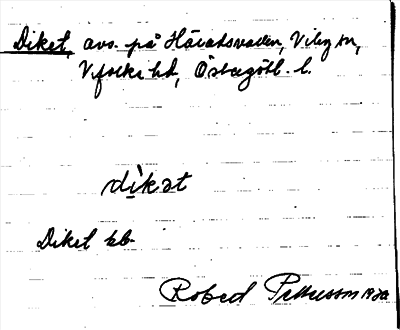 Diket, avs. på Häradsvaden, Viby sn,
Vifolka hd, Östergötl. l.
dìkət
Diket kb
Robed Pettersson 1930